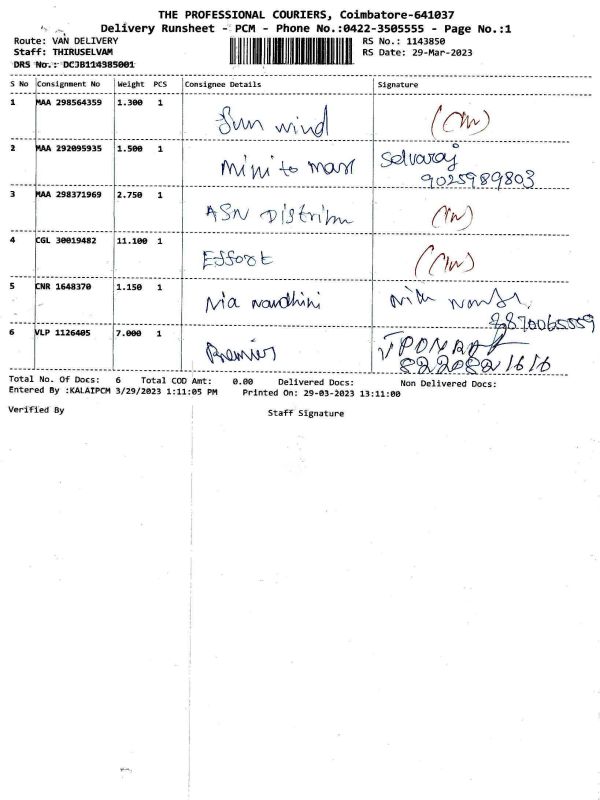 THE PROFESSIONAL COURIERS, Coimbatore-641037
Delivery Runsheet - PCM - Phone No.:0422-3505555 - Page No.:1
Route: VAN DELIVERY RS No.: 1143850
Staff: THIRUSELVAM RS Date: 29-Mar-2023
DRS No.: DCJB114385001
S No Consignment No Weight PCS Consignee Details Signature
1 MAA 298564359 1.300 1 Sun wind
2 MAA 292095935 1.500 1 mini to man Selvaraj
9025989803
3 MAA 298371969 2.750 1 ASN Distribu
4 CGL 30019482 11.100 1 Effort
5 CNR 1648370 1.150 1 Nia nandhini
8870065559
6 VLP 1126405 7.000 1 Premier
8220821616
Total No. Of Docs: 6 Total COD Amt: 0.00 Delivered Docs: Non Delivered Docs:
Entered By :KALAIPCM 3/29/2023 1:11:05 PM Printed On: 29-03-2023 13:11:00
Verified By Staff Signature